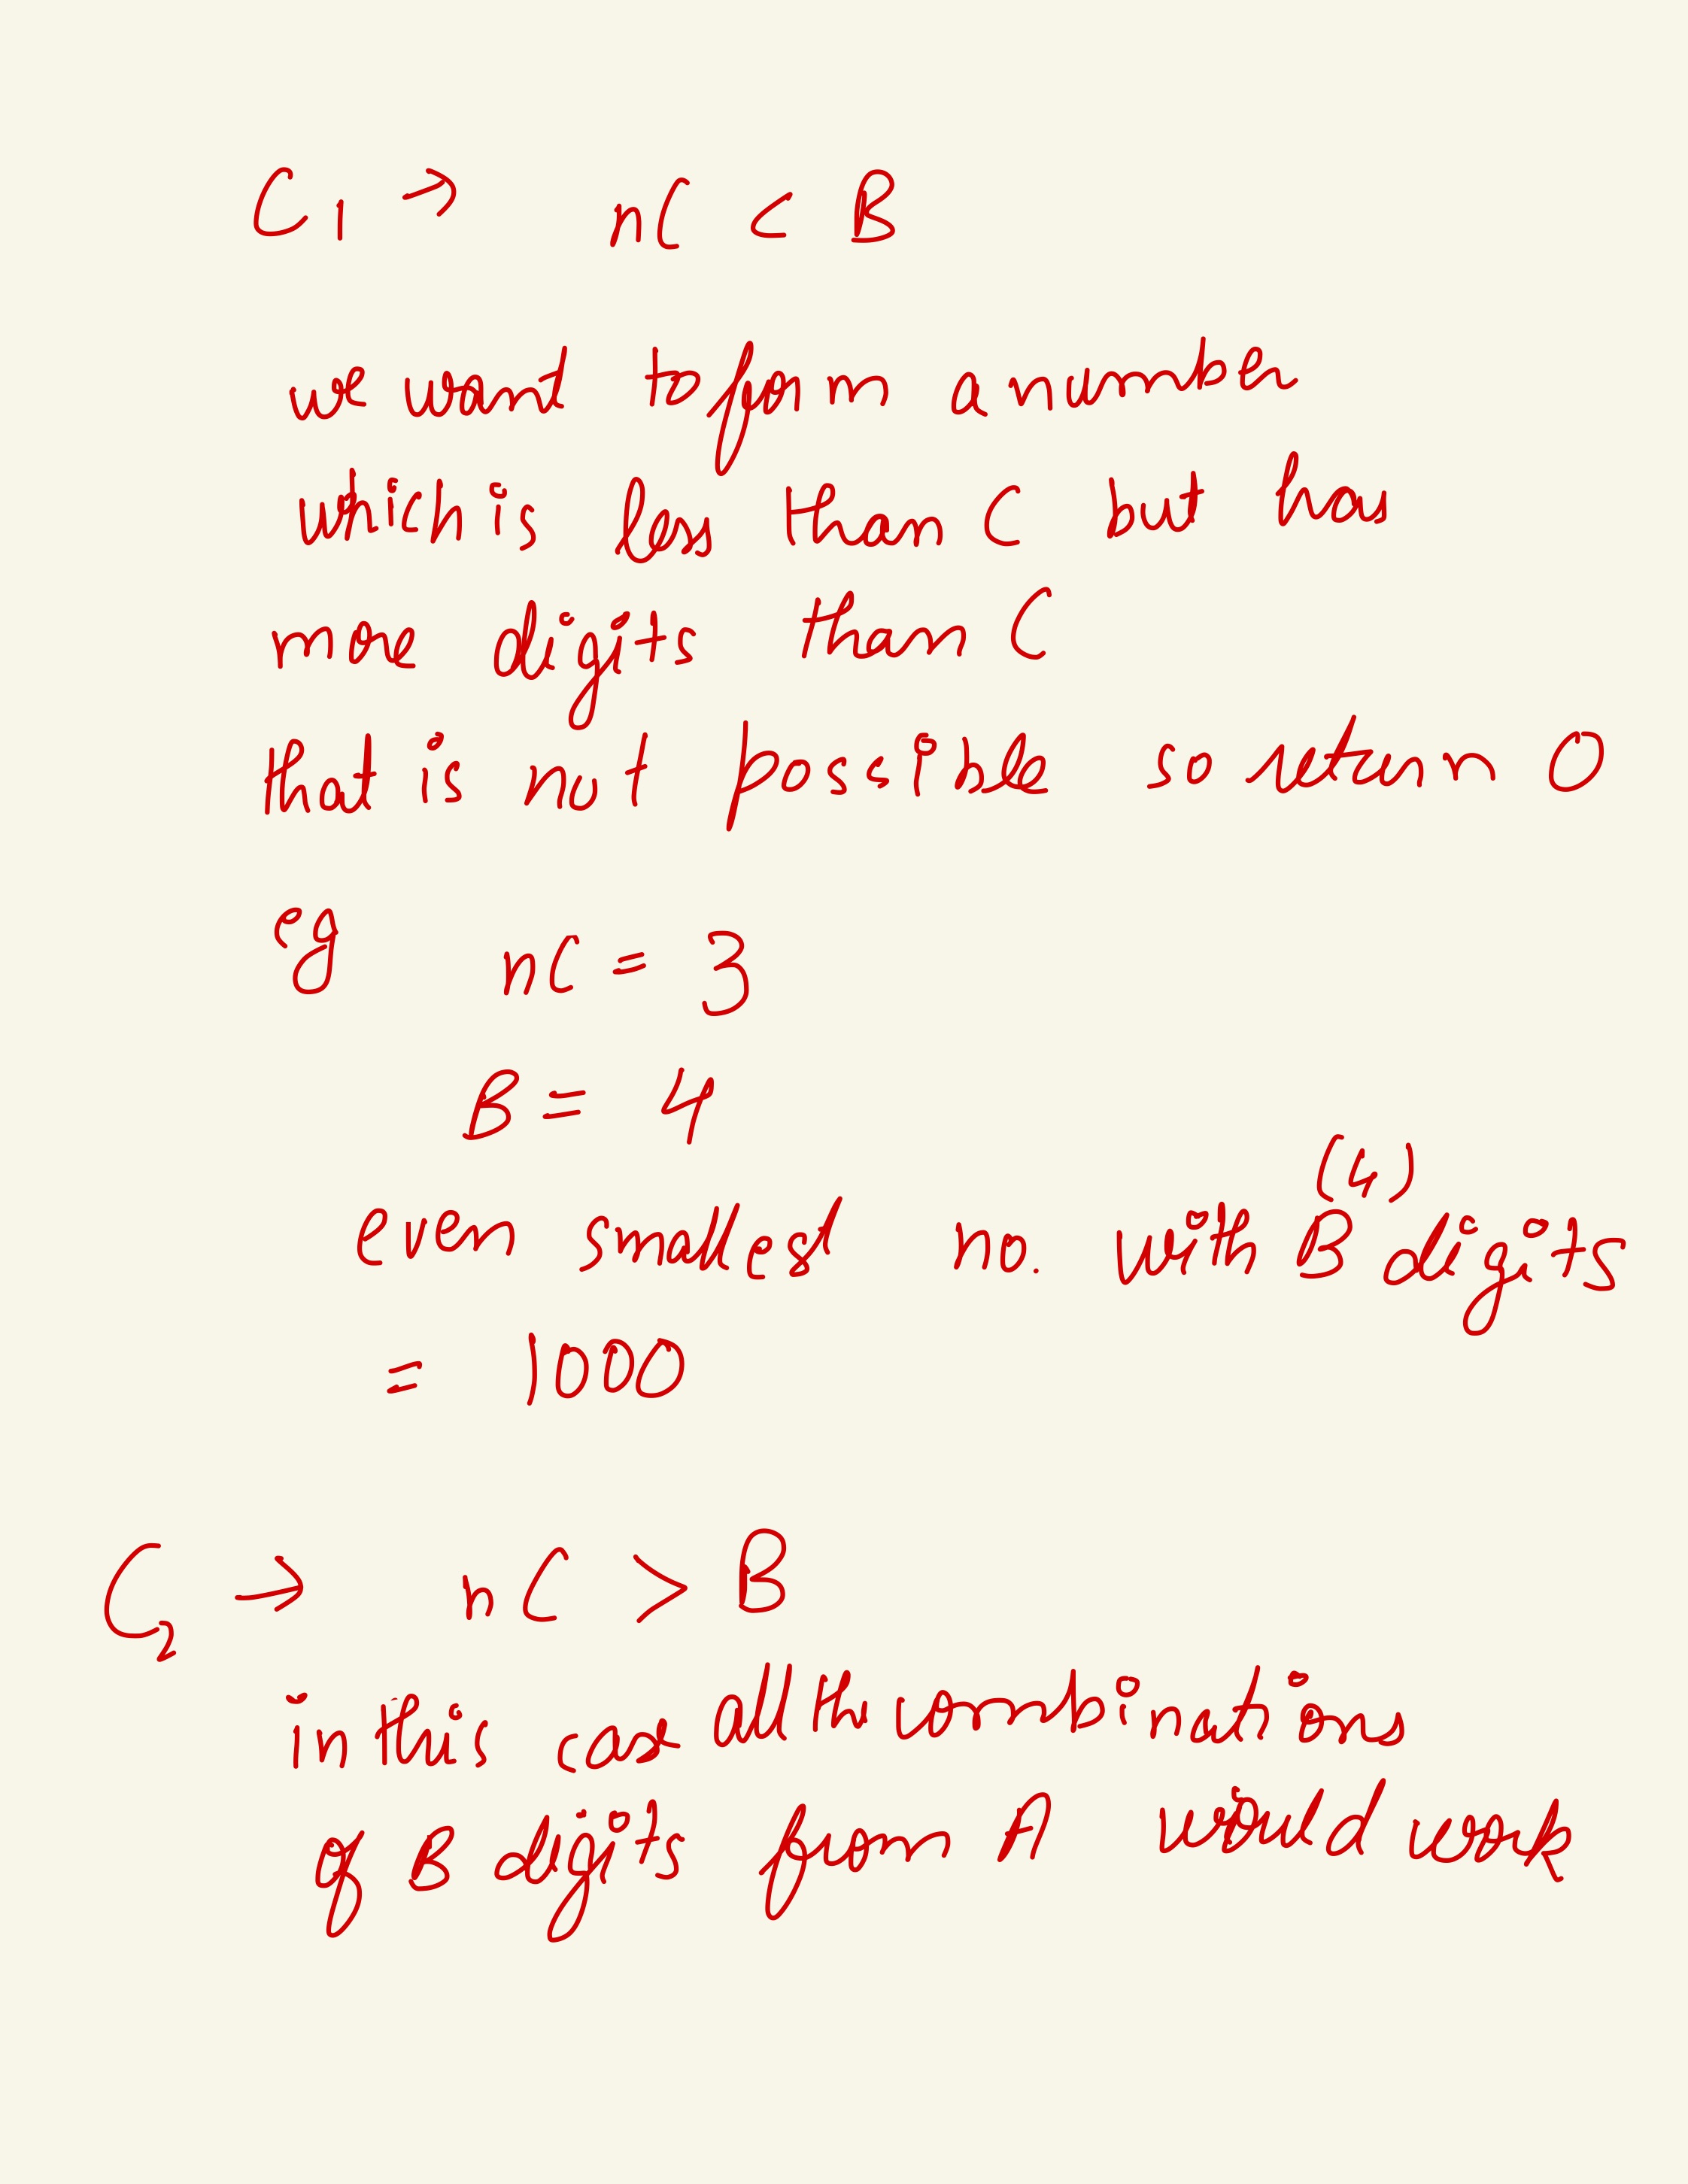 C1 → nC < B
we want to form a number
which is less than C but has
more digits than C
that is not possible so return 0
eg nC = 3
B = 4
(4)
even smallest no. with B digits
= 1000
C2 → nC > B
in this case all the combinations
of B digits from A would work